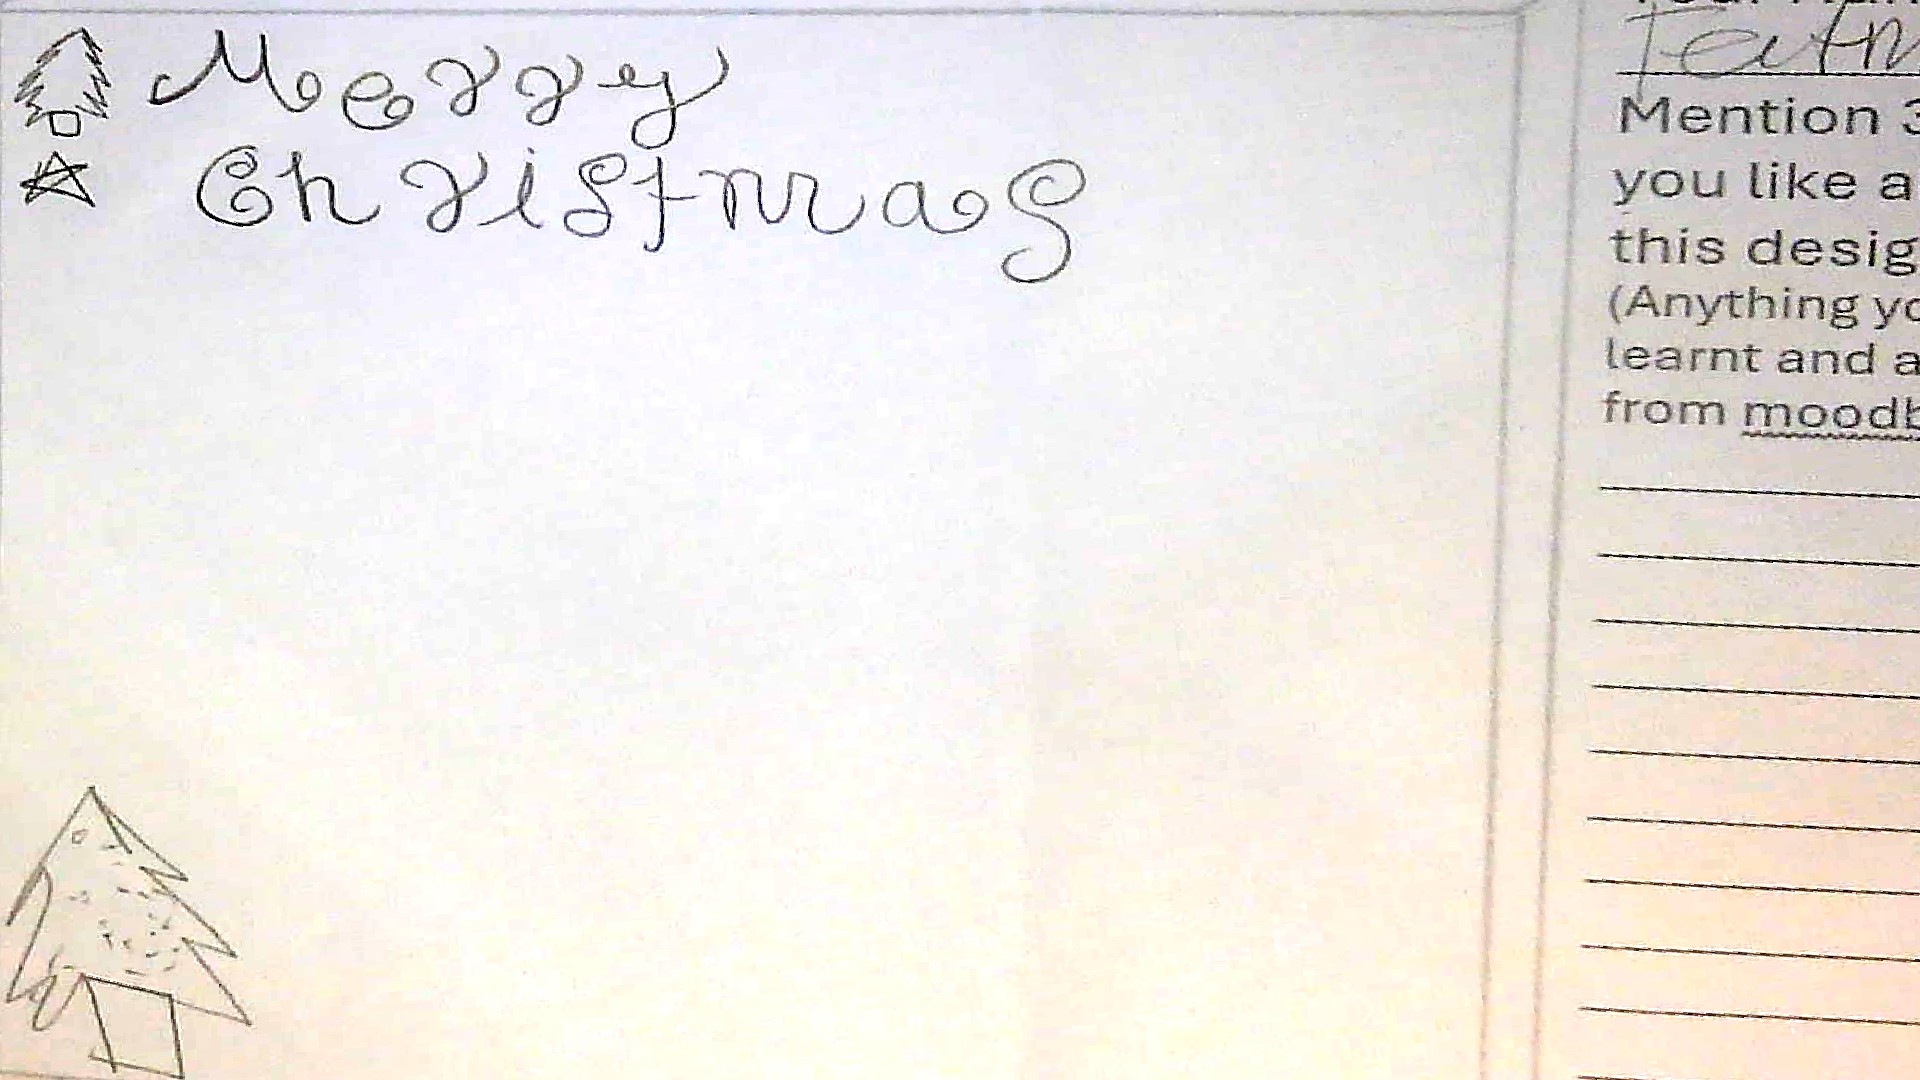 Merry
Christmas
Mention 3
you like a
this desig
(Anything yo
learnt and a
from moodb